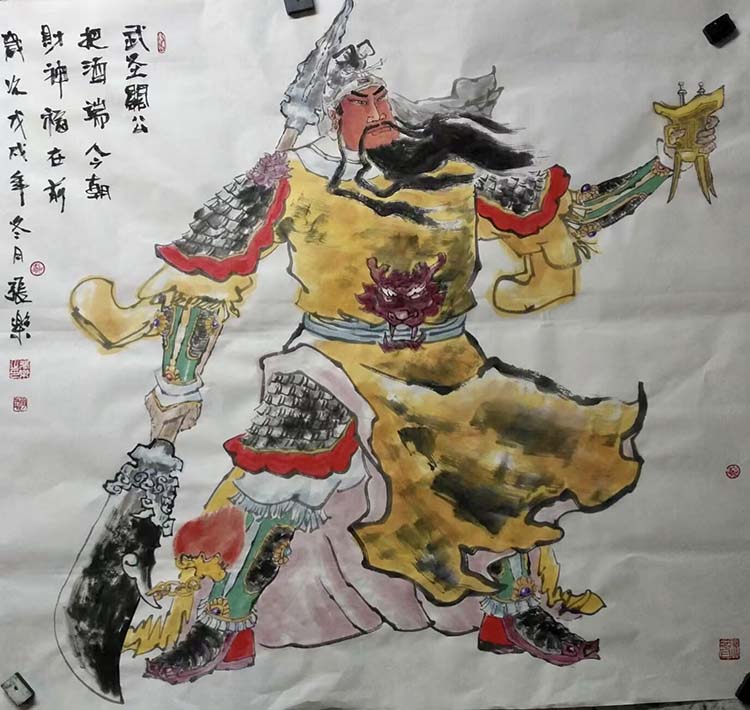 武圣關公
把酒端今朝
財神福在前
歲次戊戌年冬月張樂